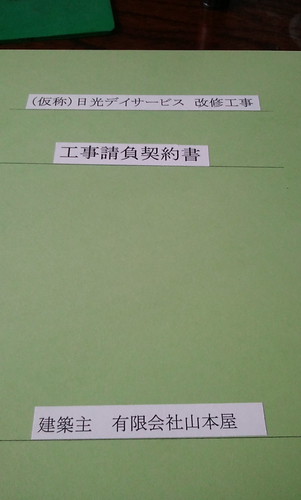 (仮称)日光デイサービス 改修工事
工事請負契約書
建築主 有限会社山本屋